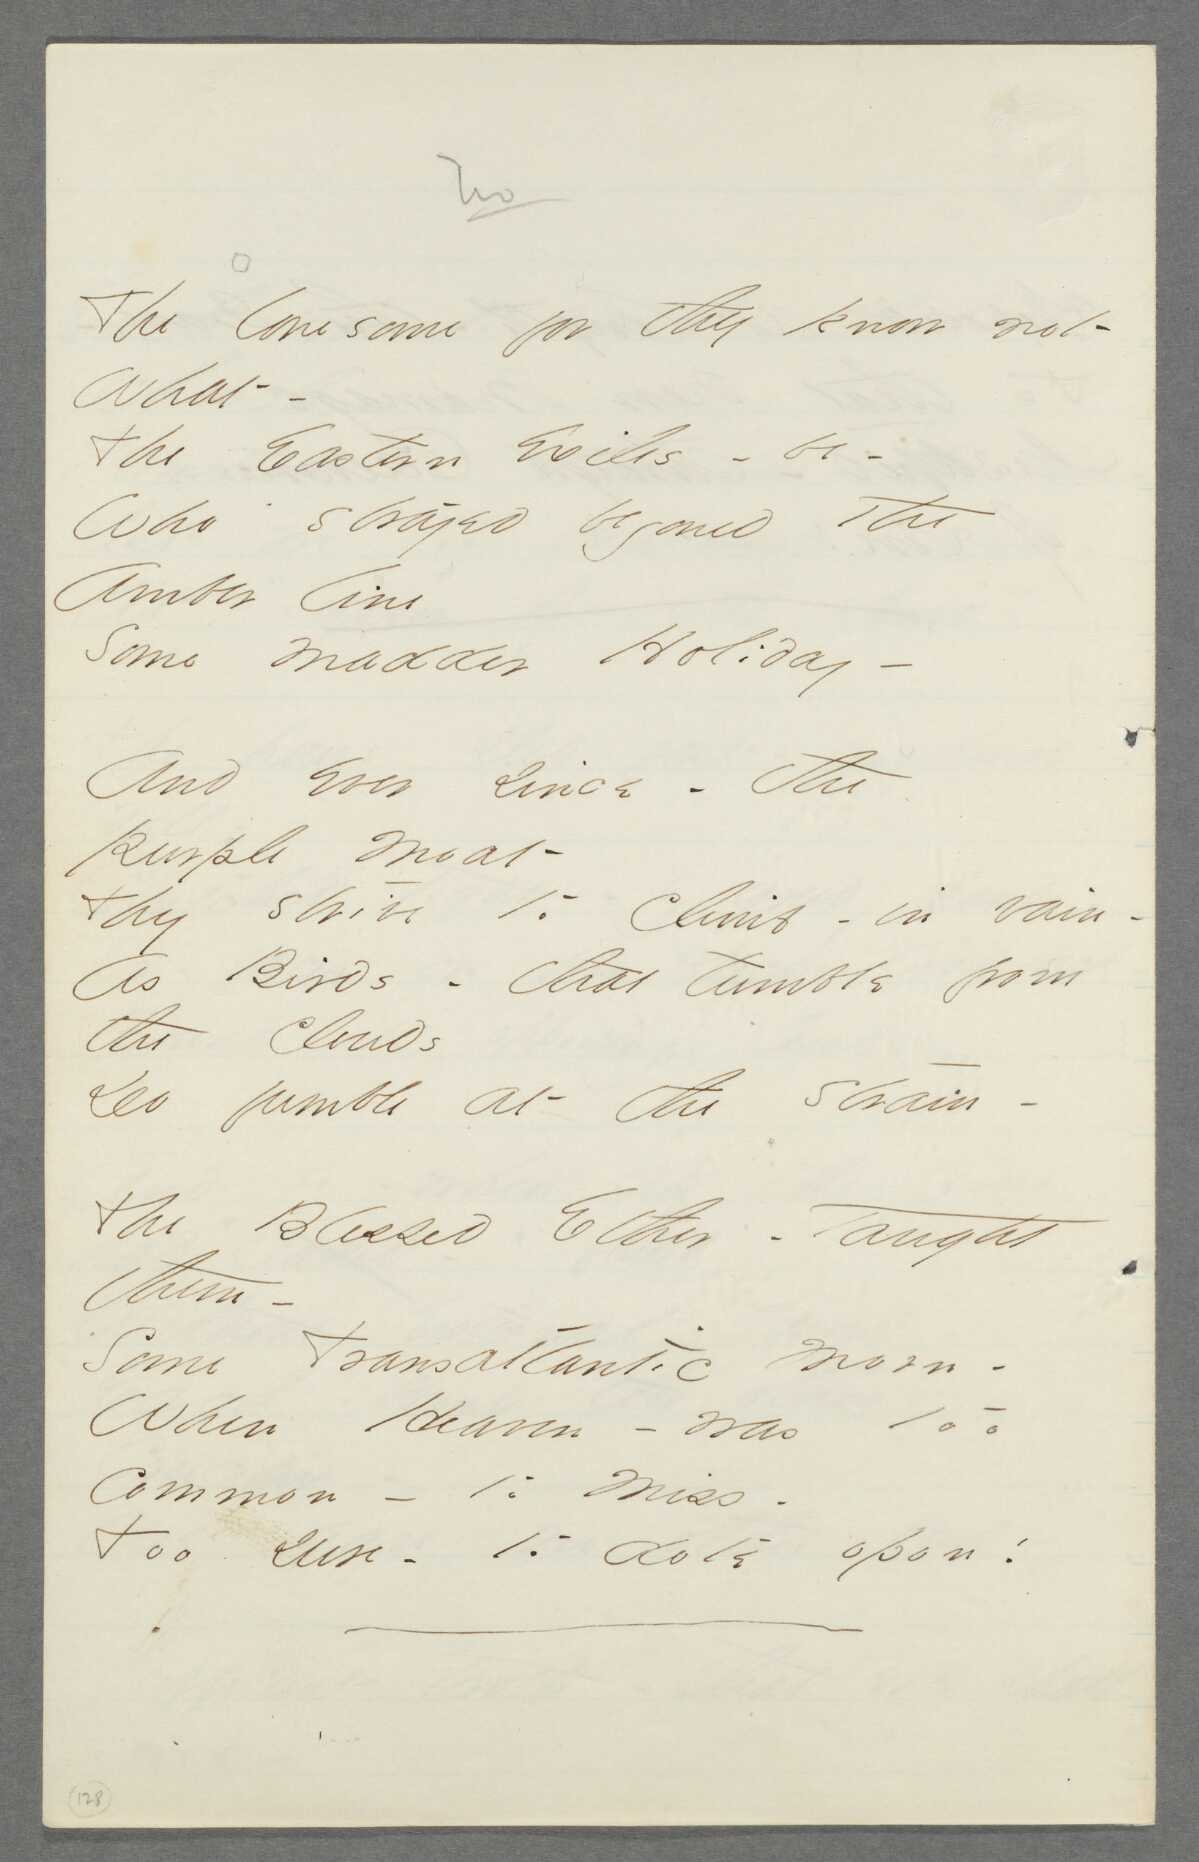 No
The lonesome for they know not
What -
The Eastern Exiles - be -
Who strayed beyond the
Amber line
Some madder Holiday -
And ever since - the
purple Moat -
They strive to climb - in vain -
As Birds - that tumble from
the clouds
Do fumble at the strain -
The Blessed Ether - taught
them -
Some Transatlantic Morn -
When Heaven - was too
common - to miss -
Too sure - to dote opon!
128